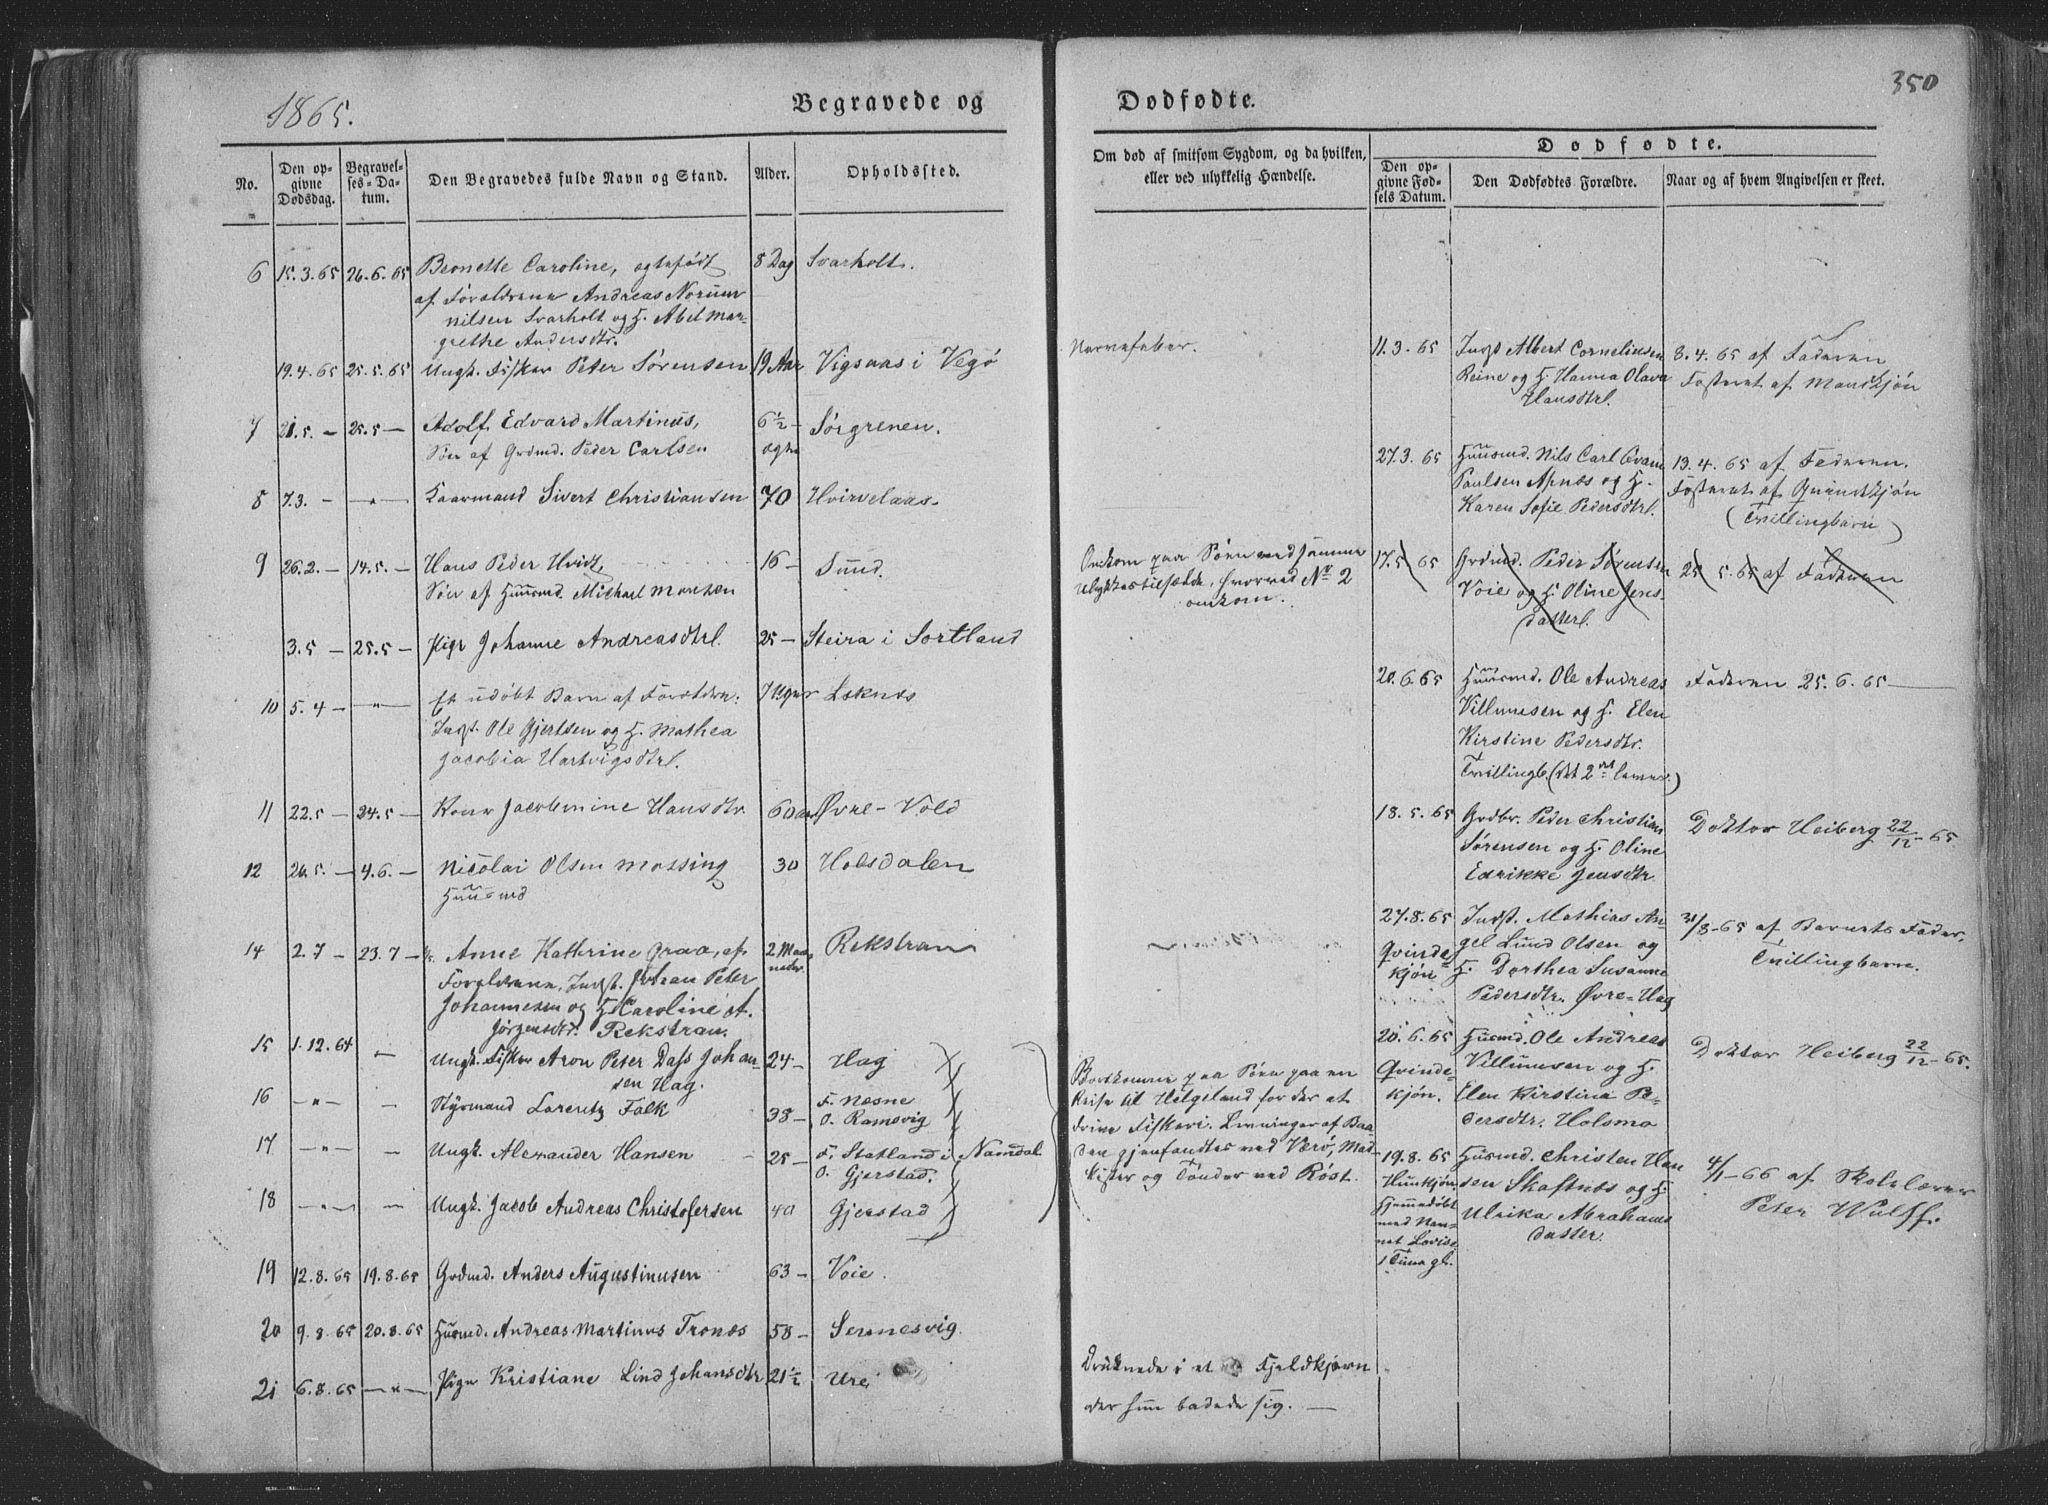 1865.
Begravede og
No.
Den op-
givne
Dødsdag.
Begravel-
ses-Da-
tum.
Den Begravedes fulde Navn og Stand.
Alder.
Opholdssted.
6 15.3.65 26.6.65 Bernette Caroline, ægtefødt 8 Dag Svarholt.
af Forældrene Andreas Norum
Nilsen Svarholt og H. Abel Mar-
grethe Andersdtr.
19.4.65 25.5.65 Ungk. Fisker Peter Sørensen 19 Aar Vigsaas i Vegø
7 21.5. — 25.5 — Adolf Edvard Martinus, 6½ — Sørgrenen.
Søn af Grdmd. Peder Carlsen ægte
8 7.3. — — " — Kaarmand Sivert Christiansen 70 Hvirvelaas.
9 26.2. — 14.5. — Hans Peder Hvidt, 16 — Sund.
Søn af Huusmd. Michael Morthen
3.5 — 25.5 — Pige Johanne Andreasdtr. 25 — Steira i Sortland
10 5.4 — — " — Et udøbt Barn af Foreldr: 7 Uger Leknes
Indst. Ole Gjertsen og H. Mathea
Jacobia Hartvigsdtr.
11 22.5 — 24.5 — Kone Jacobmine Hansdtr. 60 aar Øvre-Vold
12 26.5. — 4.6. — Nicolai Olsen Mossing 30 Holsdalen
Huusmd
14 2.7 — 23.7 — Anne Kathrine Graa, af 2 Maa- Rekstran
neder
Forældrene, Indst. Johan Peter
Johannesen og H. Karoline A.
Jørgensdtr. Rekstran.
15 1.12.64 — Ungk. Fisker Aron Peter Dass Johan- 24 — Hag
sen Hag.
16 — " — — Styrmand Lorentz Falk 38 — F. Næsne
O. Ramsvig
17 — " — — Ungk. Alexander Hansen 25 — F. Statland i Namdal
O. Gjerstad.
18 — " — — Ungk. Jacob Andreas Christofersen 40 Gjerstad
19 12.8.65 19.8.65 Grdmd. Anders Augustinusen 63 — Voie.
20 9.8.65 20.8.65 Husmd. Andreas Martinus Tronæs 58 — Sennesvig.
21 6.8.65 — " — Pige Kristiane Lind Johansdtr 21½ Urei
Dødfødte.
350
Om død af smitsom Sygdom, og da hvilken,
eller ved ulykkelig Hændelse.
Dødfødte.
Den op-
givne Fød-
sels Datum.
Den Dødfødtes Forældre.
Naar og af hvem Angivelsen er skeet.
Nervefeber.
11.3.65 Indst Albert Corneliusen 8.4.65 af Faderen
Reine og H. Hanna Olava Fosteret af Mandkjøn
Hansdtr.
27.3.65 Huusmd. Nils Carl Evam 13.4.65 af Faderen.
Paulsen Apnæs og H. Fosteret af Qvindekjøn
Karen Sofie Pedersdtr. (Tvillingbarn)
Omkom paa Søen ved samme
Ulykkestilfælde, hvorved No 2
omkom.
17.5.65 Grdmd. Peder Sørensen 25.5.65 af Faderen
Voie og H. Oline Jens-
datter.
20.6.65 Huusmd. Ole Andreas Faderen 25.6.65 —
Villumsen og H. Elen
Kirstine Pedersdtr.
Tvillingb. (det 2det lever.)
18.5.65 Grdbr. Peder Christian Doktor Heiberg 22/12-65.
Sørensen og H. Oline
Edrikke Jensdtr.
27.8.65 Indst. Mathias An- 31/8-65 af Barnets Fader,
Qvinde- gel Lund Olsen og Tvillingbarn.
kjøn H. Dorthea Susanne
Pedersdtr. Øvre-Hag
20.6.65 Husmd. Ole Andreas Doktor Heiberg 22/12-65.
Qvinde- Villumsen og H.
kjøn. Elen Kirstina Pe-
dersdtr. Holsmo
Bortkomne paa Søen paa en
Reise til Helgeland for der at
drive Fiskeri. Levninger af Baa-
den gjenfandtes ved Værø, Mad-
kister og Tønder ved Røst.
19.8.65 Husmd. Christen Han- 4/1-66 af Skolelærer
Hunkjøn. sen Skaftnæs og H. Peter Wulff.
Hjemmedøbt Ulrika Abrahams
med Nav- datter.
net Lovise.
1 Time gl.
Druknede i et Fjeldkjern
der hun badede sig. —